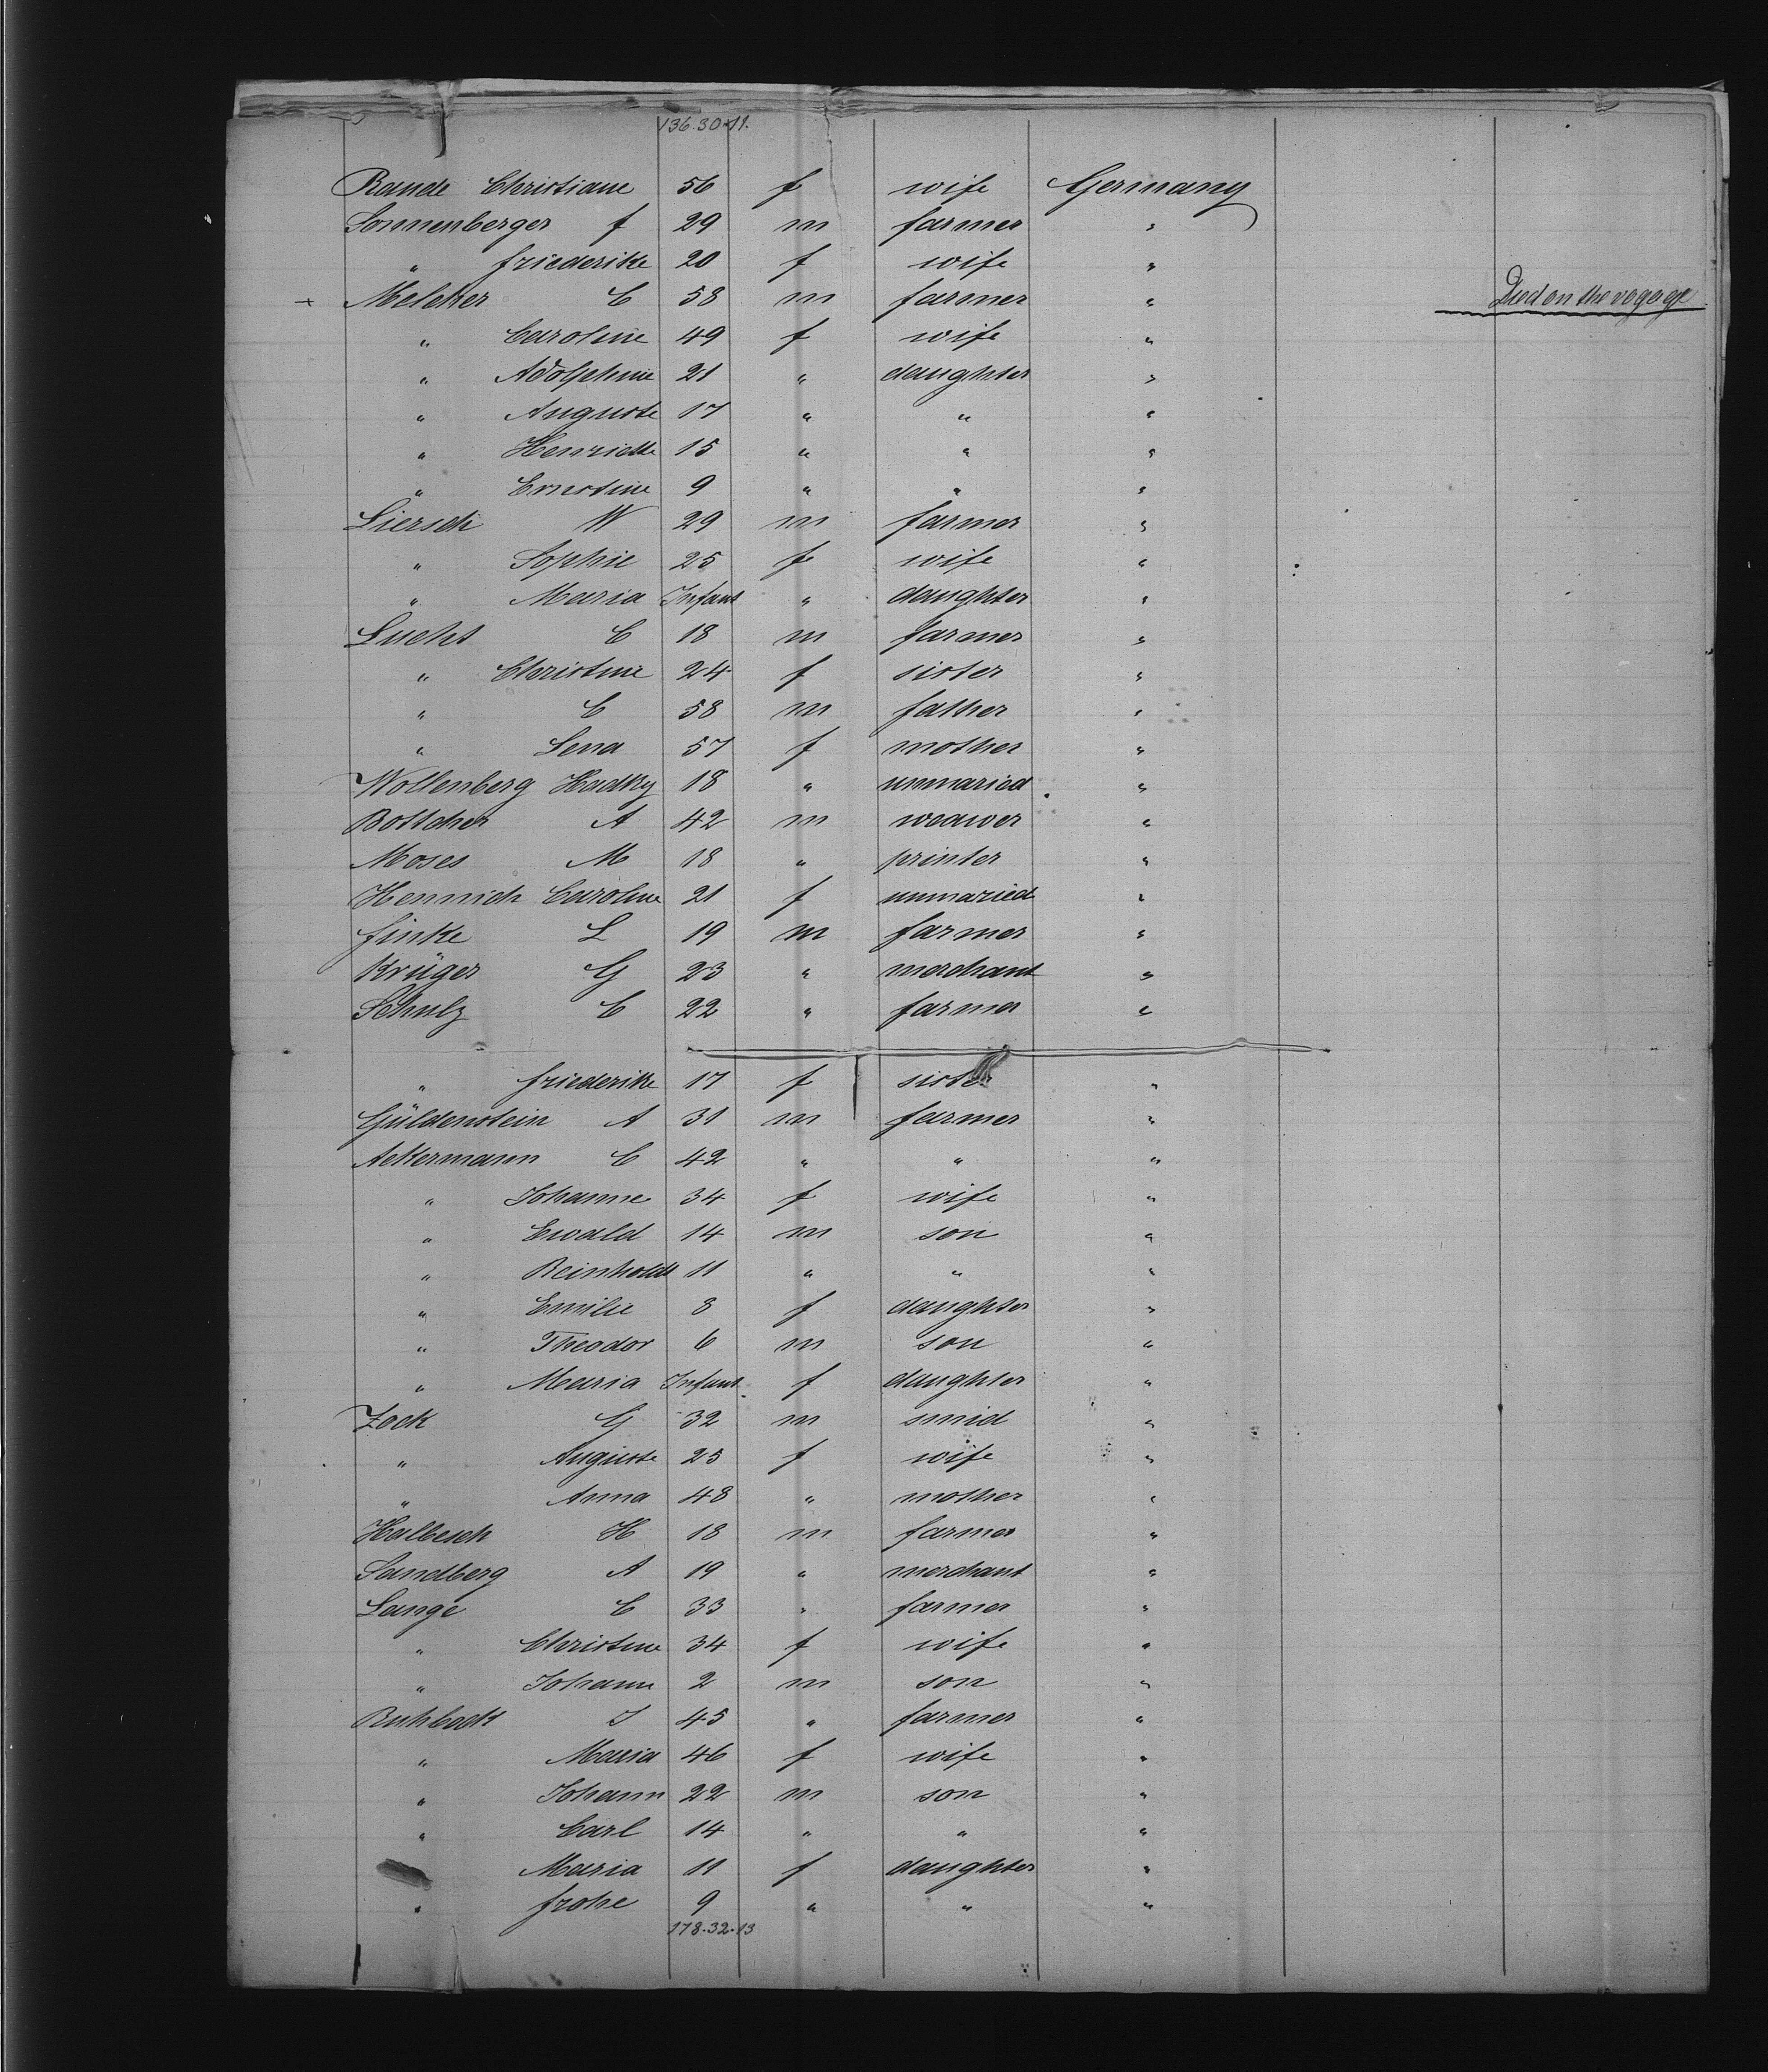 136.30.11.
Rande Christiane 56 f wife Germany
Sonnenberger f 29 m farmer "
" friederike 20 f wife "
+ Melcher C 58 m farmer " Died on the voyage
" Caroline 49 f wife "
" Adolphine 21 " daughter "
" Auguste 17 " " "
" Henriette 15 " " "
" Ernstine 9 " " "
Liersch W 29 m farmer "
" Sophie 25 f wife "
" Maria Infant " daughter "
Lucht C 18 m farmer "
" Christine 24 f sister "
" C 58 m father "
" Lena 57 f mother "
Wollenberg 18 " unmaried "
Bottcher A 42 m weawer "
Moses M 18 " printer "
Hennich Caroline 21 f unmaried "
finke L 19 m farmer "
Krüger G 23 " merchant "
Schulz C 22 " farmer "
" friederike 17 f sister "
Güldenstein A 31 m farmer "
Ackermann C 42 " " "
" Johanne 34 f wife "
" Ewald 14 m son "
" Reinhold 11 " " "
" Emilie 8 f daughter "
" Theodor 6 m son "
" Maria Infant f daughter "
Zock G 32 m smid "
" Auguste 25 f wife "
" Anna 48 " mother "
H 18 m farmer "
Sandberg A 19 " merchant "
Lange C 33 " farmer "
" Christine 34 f wife "
" Johann 2 m son "
J 45 " farmer "
" Maria 46 f wife "
" Johann 22 m son "
" Carl 14 " " "
Maria 11 f daughter "
" 9 " " "
178.32.13